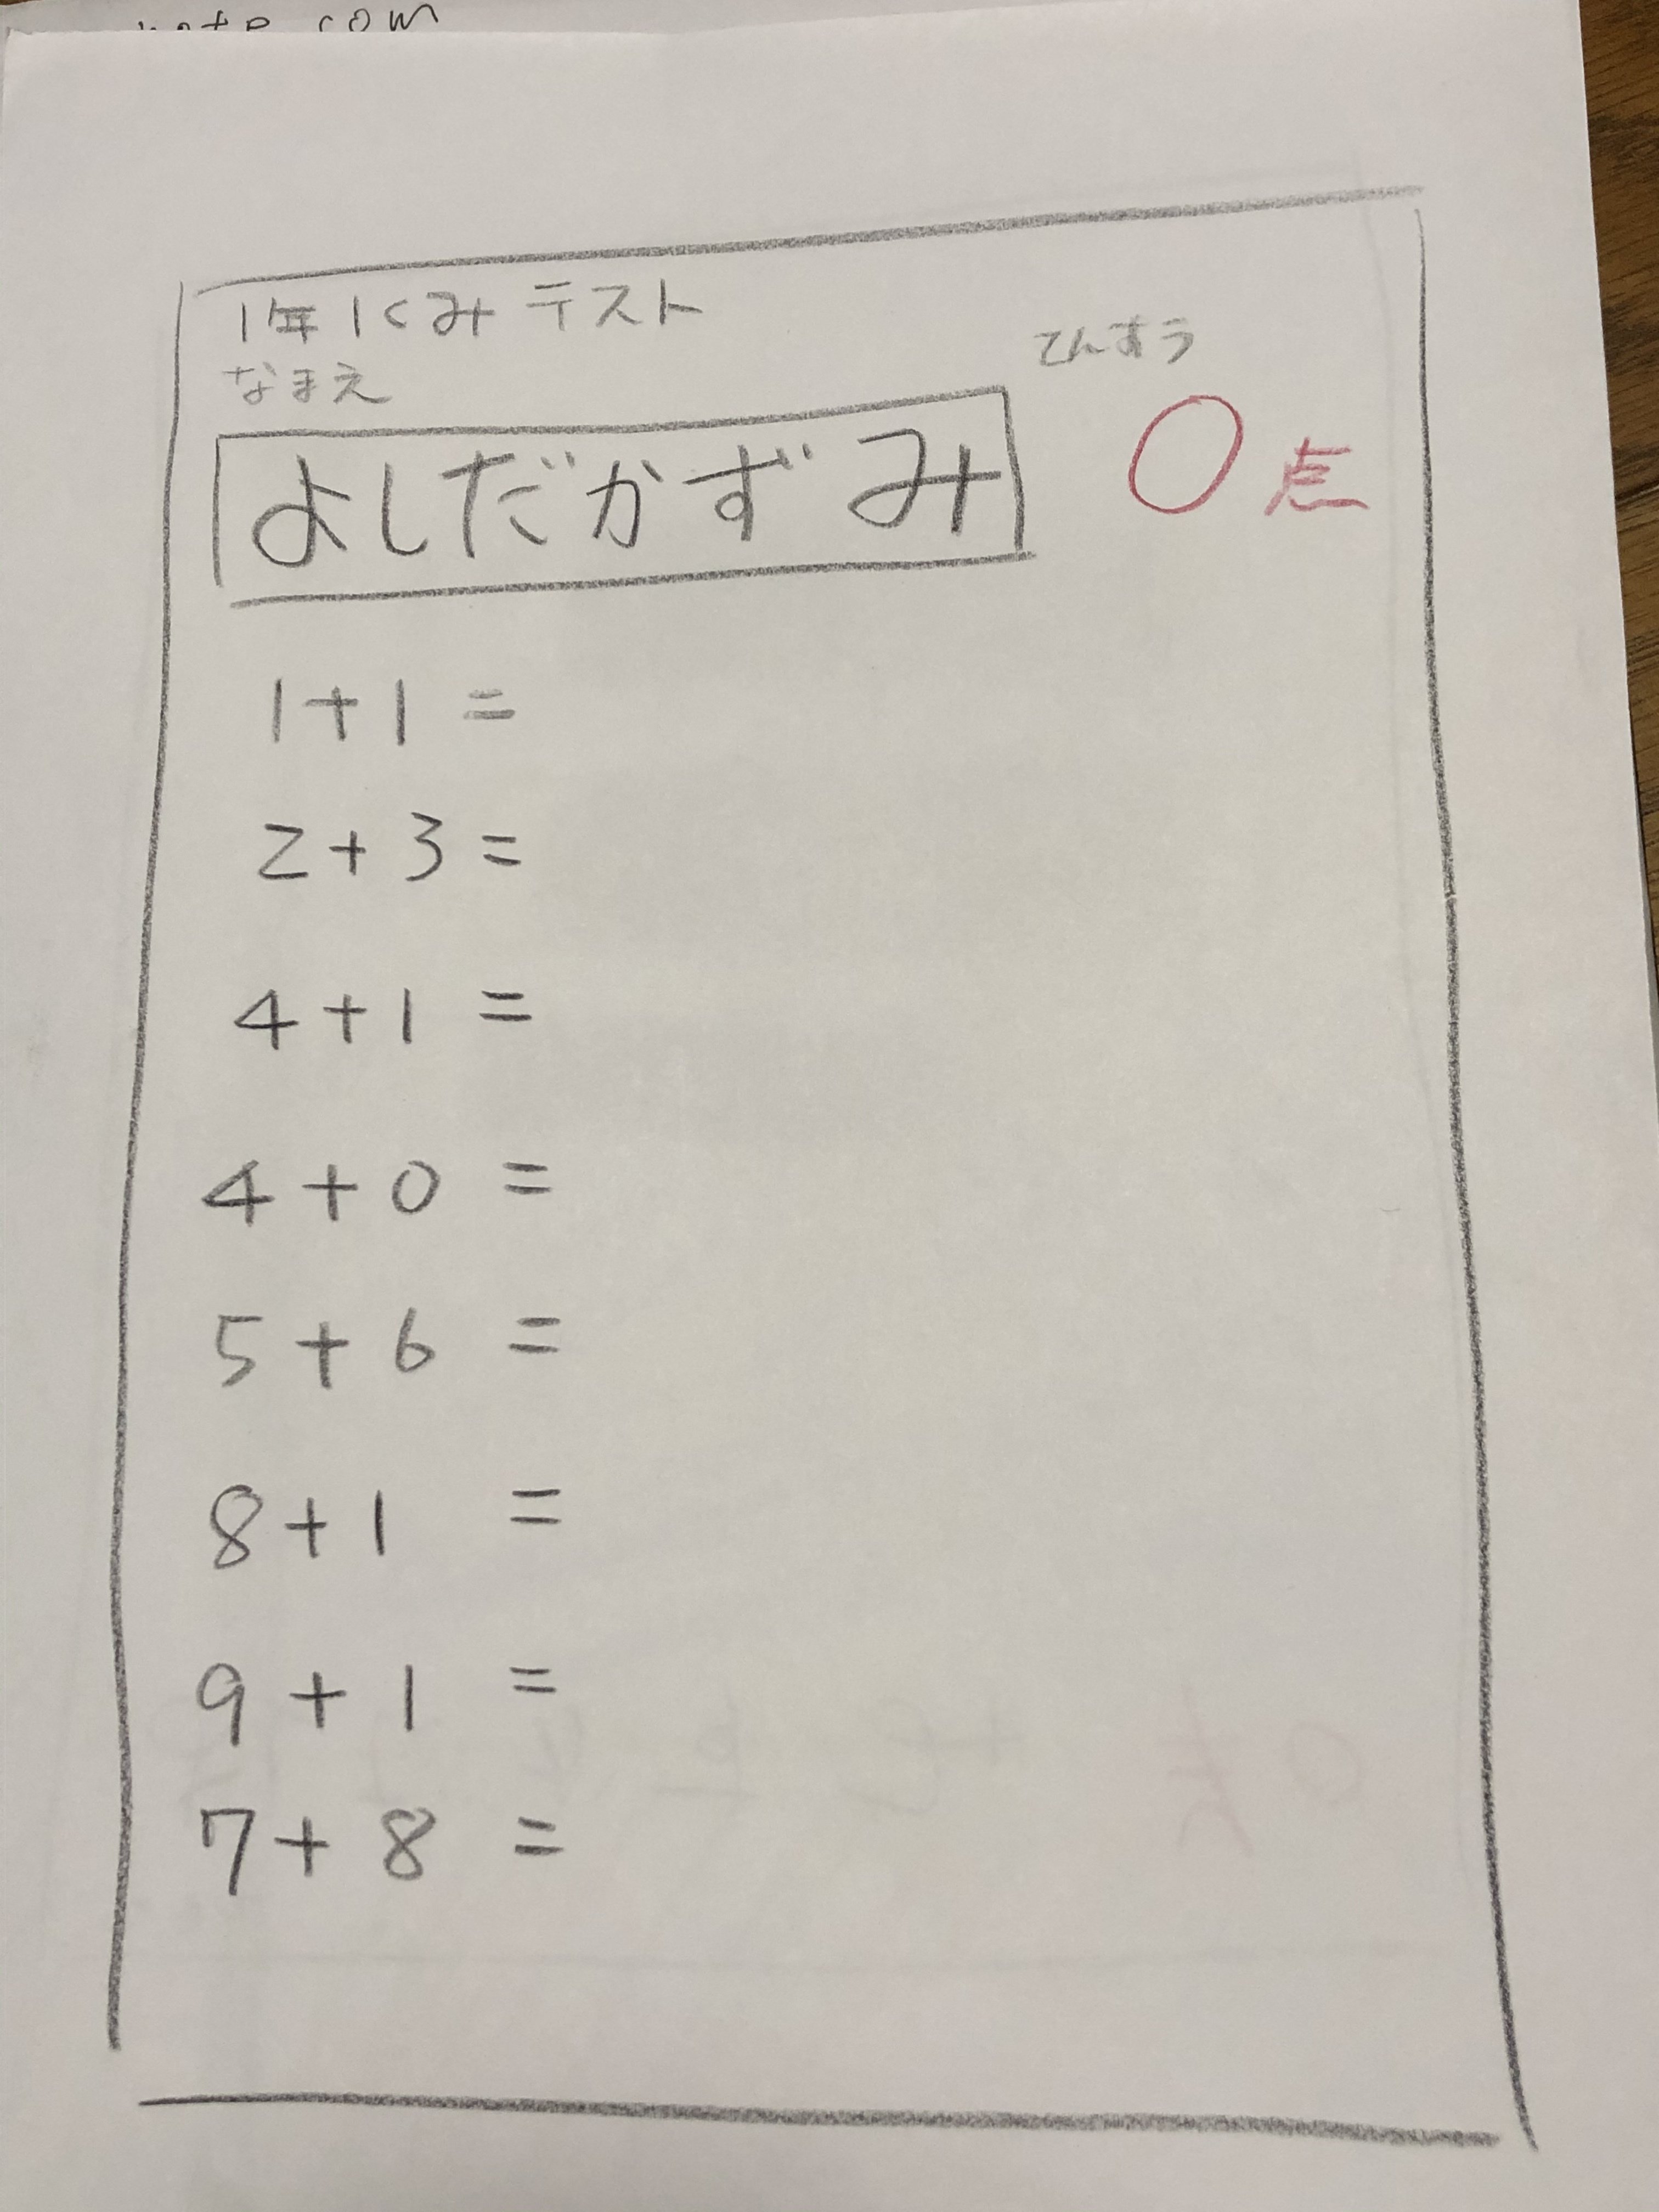 com
1年1くみテスト
なまえ
てんすう
よしだかずみ
0点
1+1=
2+3=
4+1=
4+0=
5+6=
8+1=
9+1=
7+8=